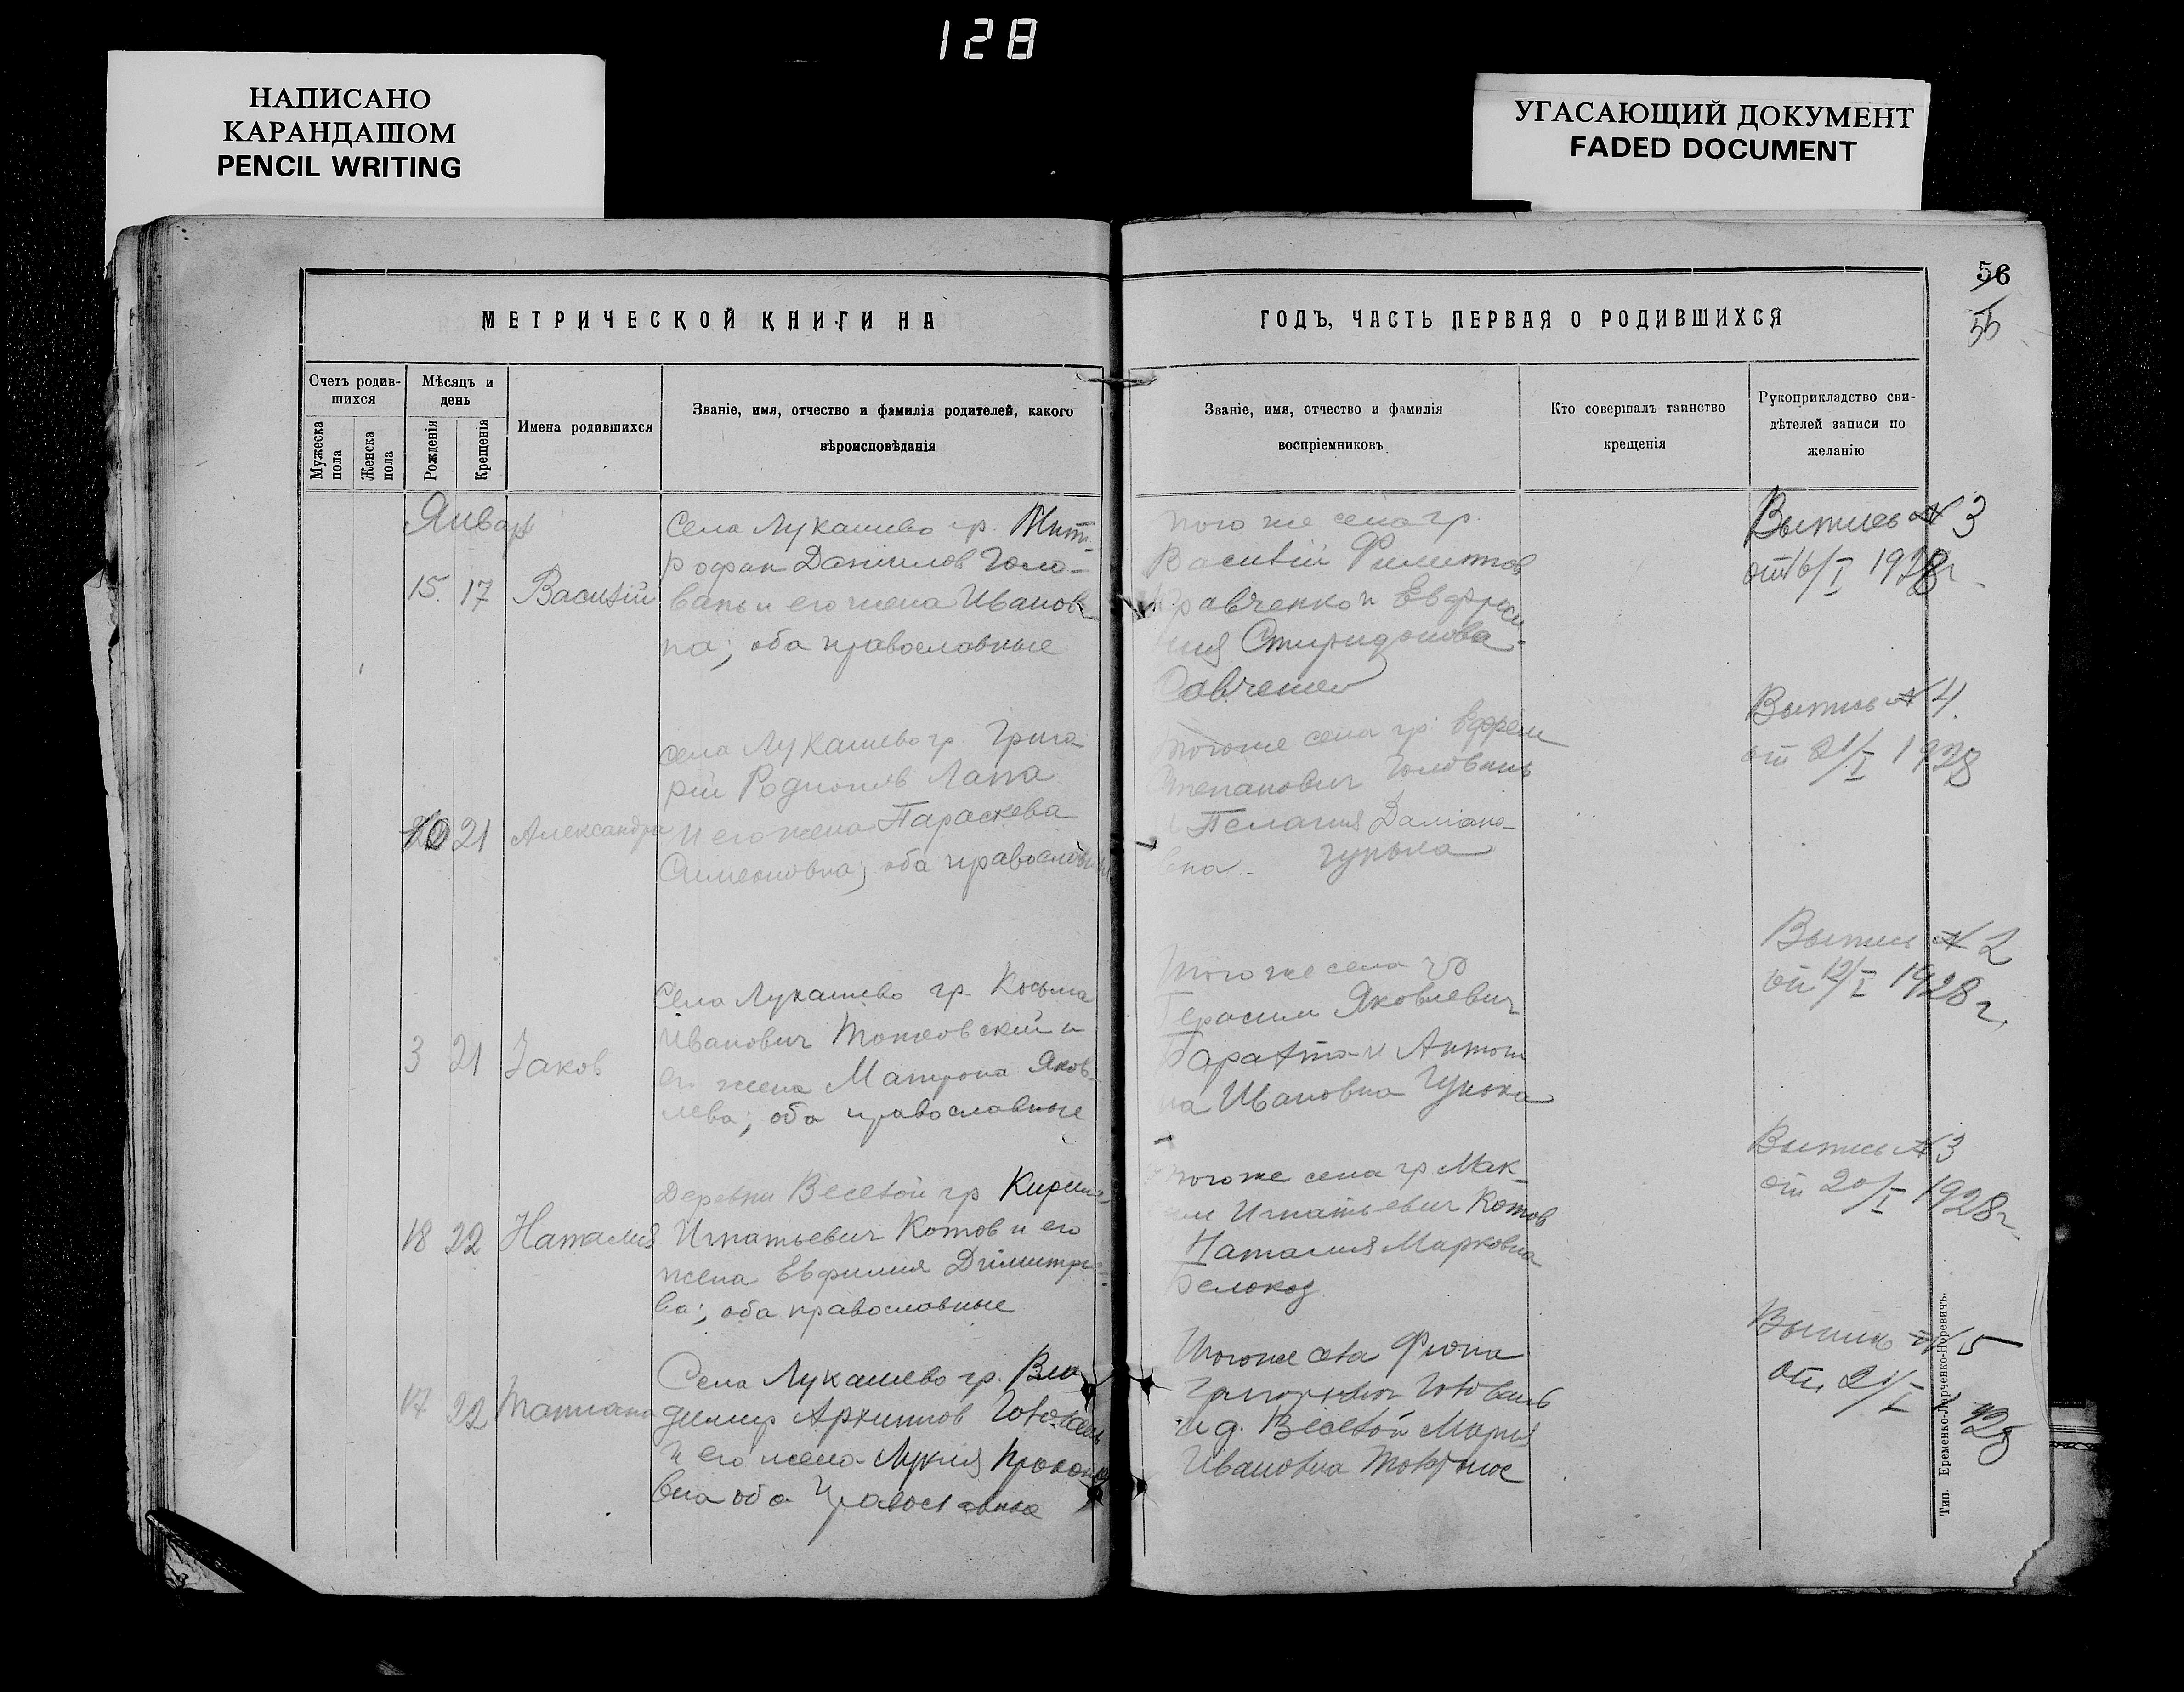 128
НАПИСАНО
КАРАНДАШОМ
PENCIL WRITING
УГАСАЮЩИЙ ДОКУМЕНТ
FADED DOCUMENT
56
55
МЕТРИЧЕСКОЙ КНИГИ НА
ГОДЪ, ЧАСТЬ ПЕРВАЯ О РОДИВШИХСЯ
Счетъ родив-
шихся
Мужеска
пола
Женска
пола
Мѣсяцъ и
день
Рожденія
Крещенія
Имена родившихся
Званіе, имя, отчество и фамилія родителей, какого
вѣроисповѣданія
Званіе, имя, отчество и фамилія
воспріемниковъ
Кто совершалъ таинство
крещенія
Рукоприкладство сви-
дѣтелей записи по
желанію
Январь
15. 17 Василій
Села Лукашево гр. Мит-
рофан Даниилов Голо-
вань и его жена Иванов
на; оба православные
того же села гр.
Василій Филиппов
Кравченко и Евфроси-
ния Спиридонова
Савченко
Выпись № 3
от 16/I 1928 г.
21 Александра
Села Лукашево гр. Григо
рій Родионов Лапа
и его жена Параскева
Симеоновна; оба православные
того же села гр. Ефрем
Степанович Головань
и Пелагия Дамиано-
вна Гунька
Выпись № 4.
от 21/I 1928
3 21 Іаков
Села Лукашево гр. Косьма
Иванович Токовский и
его жена Матрона Яков-
лева; оба православные
того же села гр
Герасим Яковлевич
и Антони
на Ивановна Гунька
Выпись № 2
от 12/I 1928 г.
18 22 Наталия
Деревни Веселой гр Кирилл
Игнатьевич Котов и его
жена Евфимия Димитрие-
ва; оба православные
того же села гр Мак-
сим Игнатьевич Котов
Наталия Марковна
Белокоз
Выпись № 3
от 20/I 1928 г.
17 22 Татиана
Села Лукашево гр. Вла
димир Архиппов Головань
и его жена Лукия Прокопие
вна оба православные
того же села
Григорьевич Головань
и д. Веселой Мария
Ивановна
Выпись № 5
от 21/I 1928
Тип. Еременко-Ларченко-Норевичъ.